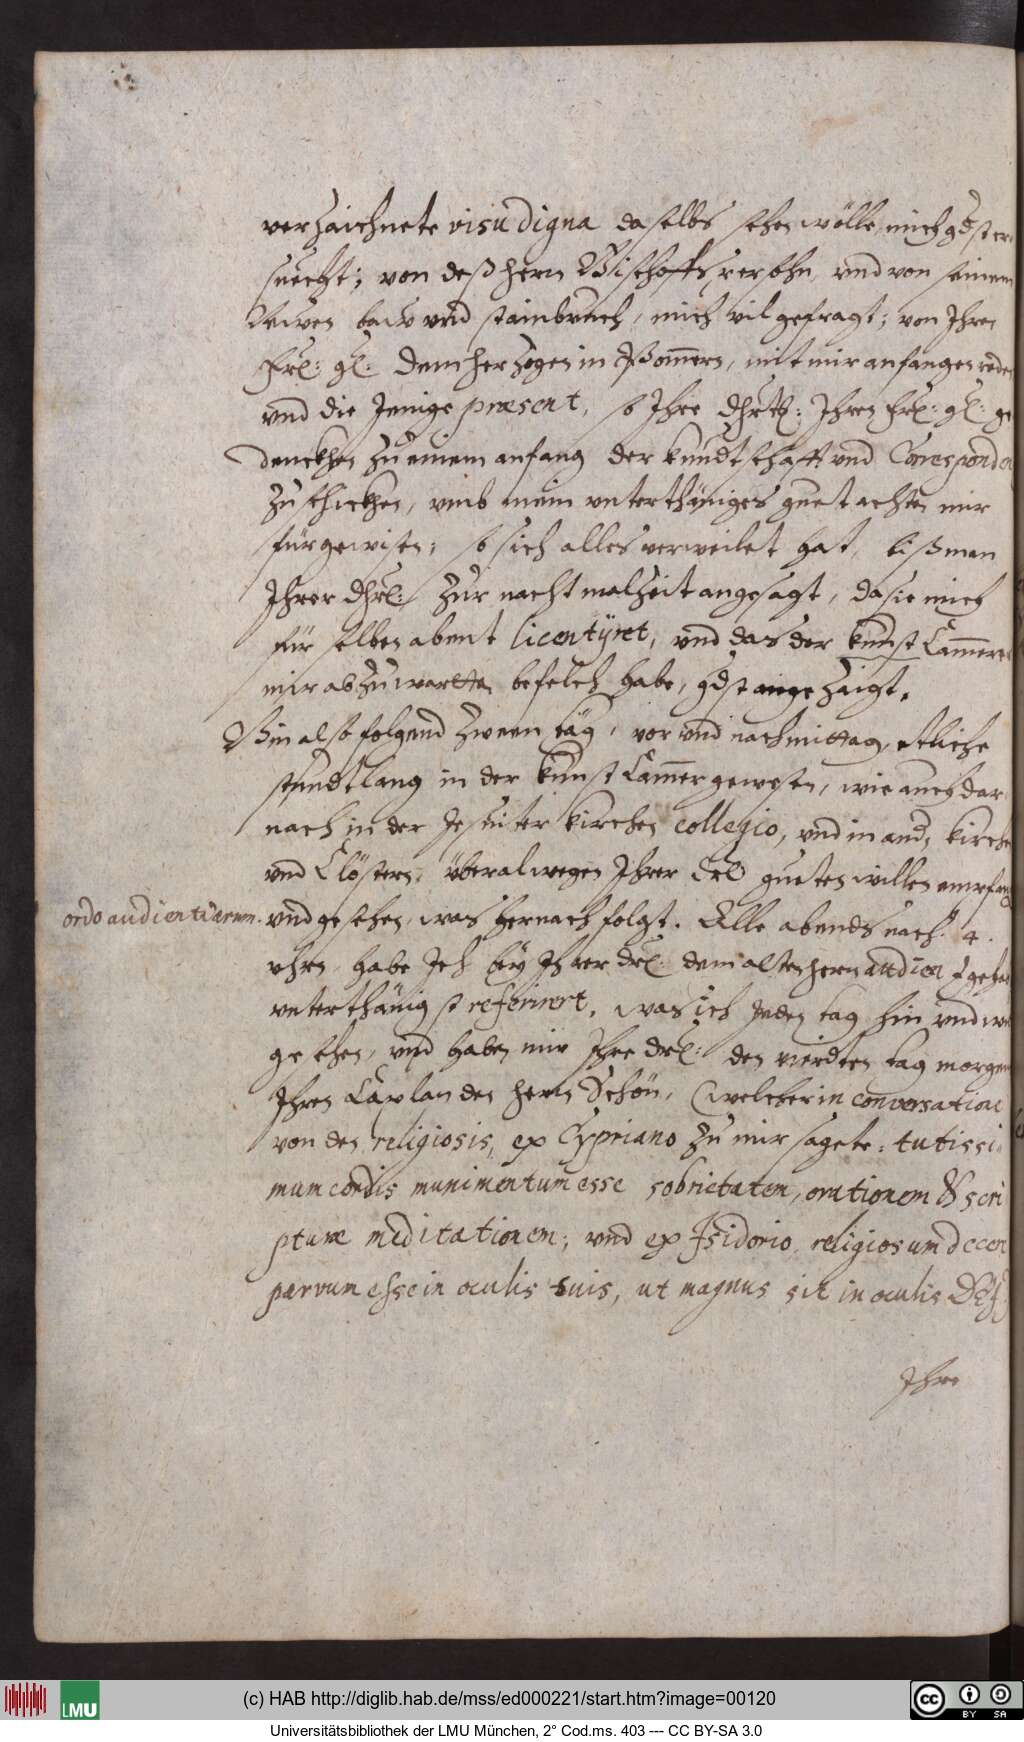 verzaichnete visu digna daselbs sehen wölle, mich gdst er
suecht; von deß hern Bischoffs persohn, vnd von seinem
Newen baw vnd stainbruch, mich vil gefragt; von Ihrer
Frl: gl: dem herzogen in Pommern, mit mir anfangen reden
vnd die Jenige præsent, so Ihre dhrtl: Ihren Frl: gl: ge
denckhen zu einem anfang der kundtschafft vnd Corresponden
zu schickhen, vmb mein vnterthäniges guetachten mir
fürgewisen; so sich alles verweilet hat, biß man
Ihrer dhrl: zur nachtmalzeit angesagt, da sie mich
für selben abent licentÿret, vnd das der kunst Cammerer
mir abzuwartten befelch habe, gdst angezaigt.
Bin also folgend zween täg, vor vnd nachmittag, etliche
stundt lang in der kunst Cammer gewesen, wie auch dar
nach in der Jesuiter kirchen collegio, vnd in and, kirchen
vnd Clöstern, überal wegen Ihrer Drl guetenwillen empfang
ordo audientiarum. vnd gesehen, was hernach folgt. Alle abends nach 4.
vhrn, habe Ich beÿ Ihrer drl: dem alten hern audien
vnterthänigst referirert, was ich Jeden tag hin vnd
gesehen, vnd haben mir Ihre drl: den vierdten tag morgen
Ihren Caplan den hern Schön, (welcher in conversatione
von den religiosis, ex Cypriano zu mir sagete: tutissi
mum cordis munimentum esse sobrietatem, orationem & scri
pturæ meditationem; vnd ex Isidorio, religiosum decere
parvum esse in oculis suis, ut magnus sit in oculis Dei)
Ihre
(c) HAB http://diglib.hab.de/mss/ed000221/start.htm?image=00120
LMU
BY SA
Universitätsbibliothek der LMU München, 2° Cod.ms. 403 --- CC BY-SA 3.0